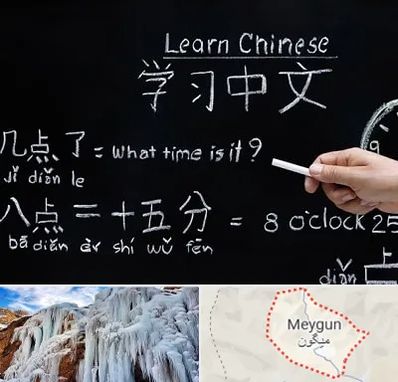 Learn Chinese
学习中文
几点了 = What time is it?
jǐ diǎn le
八点二十五分 = 8 o'clock 25
bā diǎn èr shí wǔ fēn
9
上
diǎn
Meygun
میگون